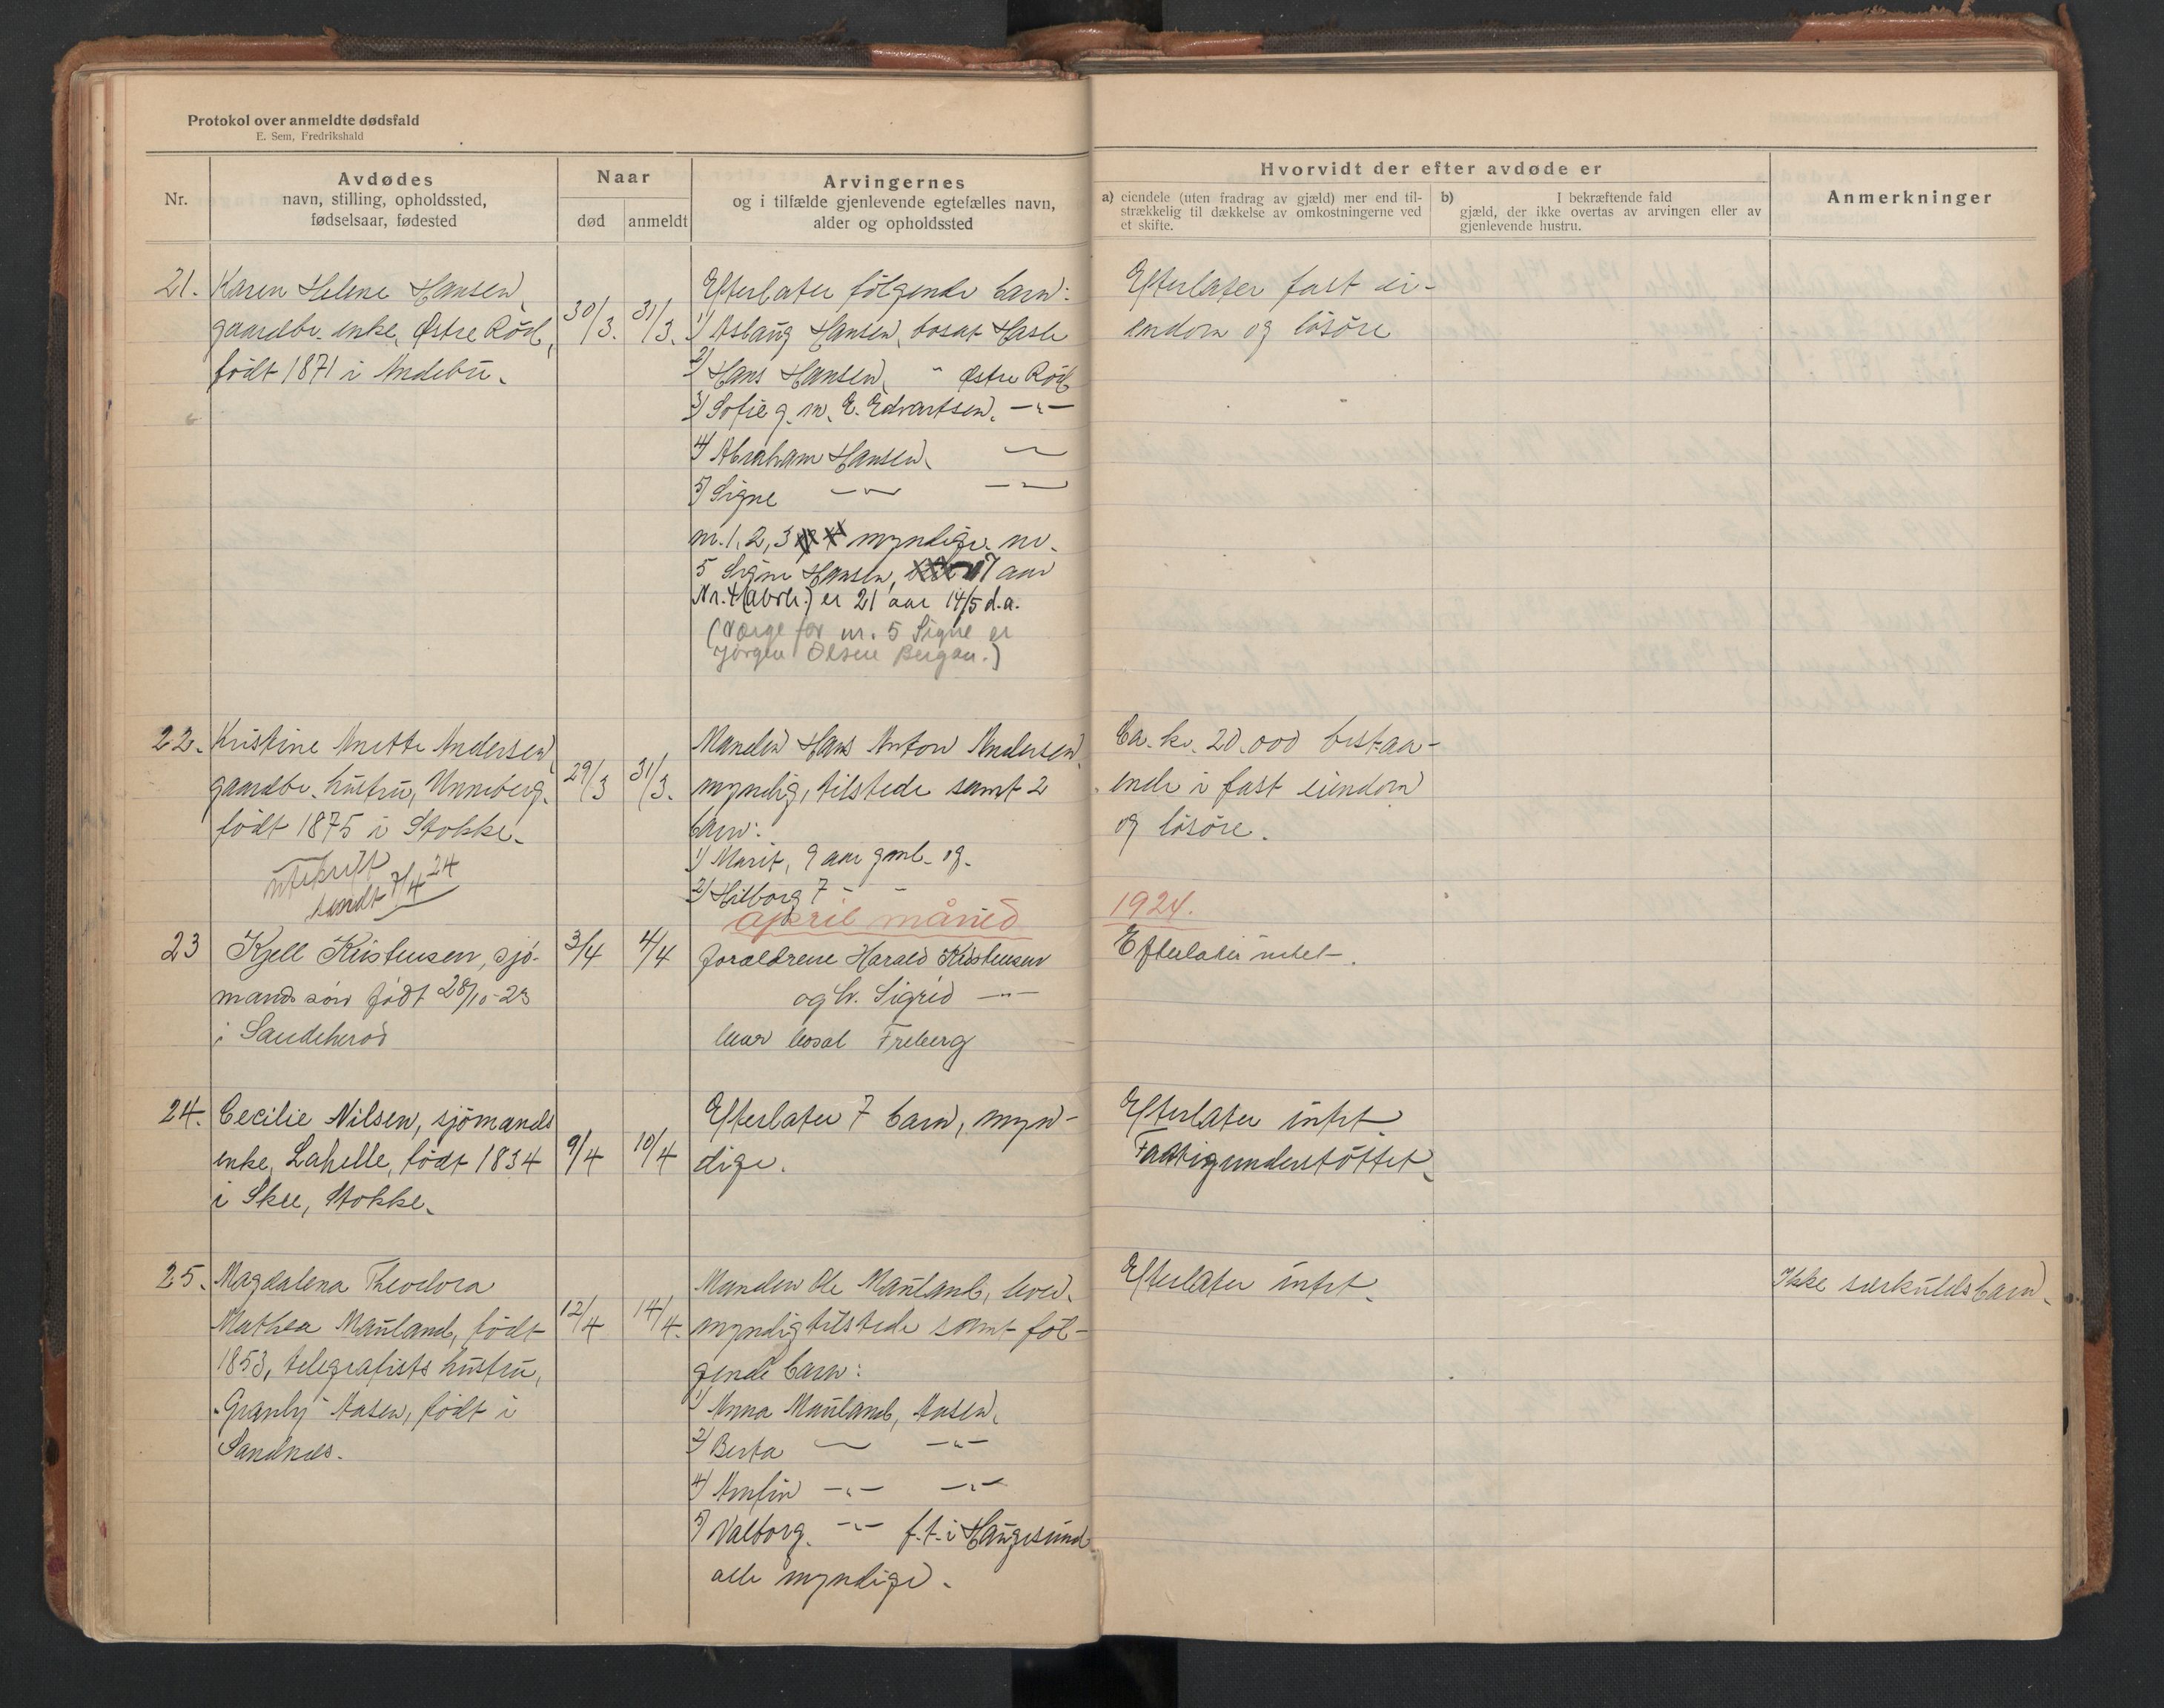 Protokol over anmeldte dødsfald
E. Sem, Fredrikshald
Nr.
Avdødes
navn, stilling, opholdssted,
fødselsaar, fødested
Naar
død
anmeldt
Arvingernes
og i tilfælde gjenlevende egtefælles navn,
alder og opholdssted
Hvorvidt der efter avdøde er
a) eiendele (uten fradrag av gjæld) mer end til-
strækkelig til dækkelse av omkostningerne ved
et skifte.
b) I bekræftende fald
gjæld, der ikke overtas av arvingen eller av
gjenlevende hustru.
Anmerkninger
21. Karen Helene Hansen,
gaardbr. enke, Østre Röd,
født 1871 i Andebu.
30/3. 31/3.
Efterlater følgende barn:
1) Aslaug Hansen, bosat Hasle
2) Hans Hansen, " Østre Röd
3) Sofie g. m. E. Edvartsen, -"-
4) Abraham Hansen, -"-
5) Signe -"- -"-
nr. 1, 2, 3 myndige. nr.
5 Signe Hansen, 17 aar
Nr. 4 (abrh.) er 21 aar 14/5 d.a.
(Værge for nr. 5 Signe er
Jørgen Olsen Bergan.)
Efterlater fast ei-
endom og løsøre
22. Kristine Anette Andersen,
gaardbr. hustru, Unneberg.
født 1875 i Stokke.
utskrift
sendt 7/4 24
29/3 31/3.
Manden Hans Anton Andersen,
myndig, tilstede samt 2
barn:
1) Marit, 9 aar gml. og.
2) Hilborg 7 - -
Ca. kr. 20.000 bestaa-
ende i fast eiendom
og løsøre.
april måned 1924.
23 Kjell Kristensen, sjö-
mands sön født 28/10-23
i Sandeherad
3/4 4/4
foraeldrene Harald Kristensen
og h. Sigrid -"-
bosat Freberg
Efterlater intet.
24. Cecilie Nilsen, sjömands
enke, Lahelle, født 1834
i Skee, Stokke.
9/4 10/4
Efterlater 7 barn, myn-
dige.
Efterlater intet.
Fattigunderstöttet.
25. Magdalena Theodora
Mathea Mauland, født
1853, telegrafists hustru,
"Granly" Aasen, født i
Sandnes.
12/4 14/4.
Manden Ole Mauland,
myndig tilstede samt føl-
gende barn:
1) Anna Mauland, Aasen,
2) Berta -"- -"-
4) Arnfin -"- -"-
5) Valborg. -"- f.t. i Haugesund
alle myndige.
Efterlater intet.
Ikke særkuldsbarn.